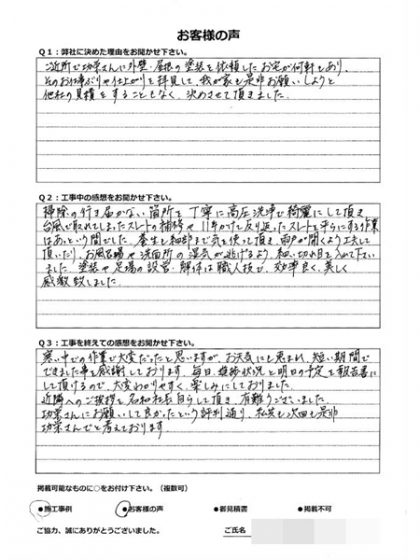 お客様の声
Q1：弊社に決めた理由をお聞かせ下さい。
ご近所で功栄さんに外壁・屋根の塗装を依頼したお宅が何軒もあり、
そのお仕事ぶりや仕上がりを拝見して、我が家も是非お願いしようと
他社の見積をすることもなく、決めさせて頂きました。
Q2：工事中の感想をお聞かせ下さい。
掃除の行き届かない箇所を丁寧に高圧洗浄で綺麗にして頂き
台風で取れてしまったスレートの補修や11年かけて反り返ったスレートを平らにする作業
はあっという間でした。養生も細部まで気を使って頂き、雨戸が開くよう工夫して
頂いたり、お風呂場や洗面所の湿気が逃げるよう、細い切れ目を入れて下さい
ました。塗装や足場の設営、解体は職人技で、効率良く、美しく
感激致しました。
Q3：工事を終えての感想をお聞かせ下さい。
寒い中での作業で大変だったと思いますが、お天気にも恵まれ、短い期間で
できました事を感謝しております。毎日、進捗状況と明日の予定を報告書に
して頂けるので、大変わかりやすく、楽しみにしておりました。
近隣へのご挨拶も名和社長自らして頂き、有難うございました。
功栄さんにお願いして良かったという評判通り、私共も次回も是非
功栄さんでと考えております
掲載可能なものに○をお付け下さい。（複数可）
●施工事例 ●お客様の声 ●御見積書 ●掲載不可
ご協力、誠にありがとうございました。 ご氏名